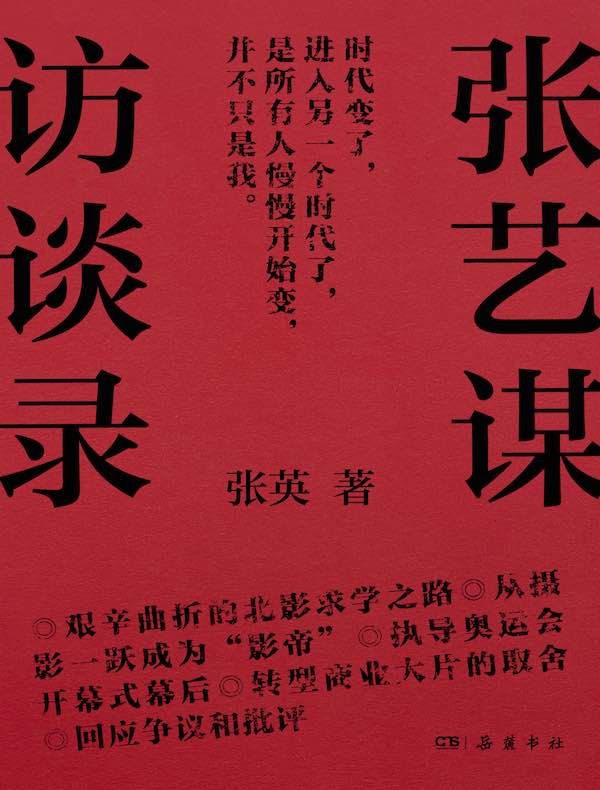 张艺谋
访谈录
时代变了，
进入另一个时代了，
是所有人慢慢开始变，
并不只是我。
张英 著
◎艰辛曲折的北影求学之路◎从摄
影一跃成为“影帝”◎执导奥运会
开幕式幕后◎转型商业大片的取舍
◎回应争议和批评
CTS 岳麓书社